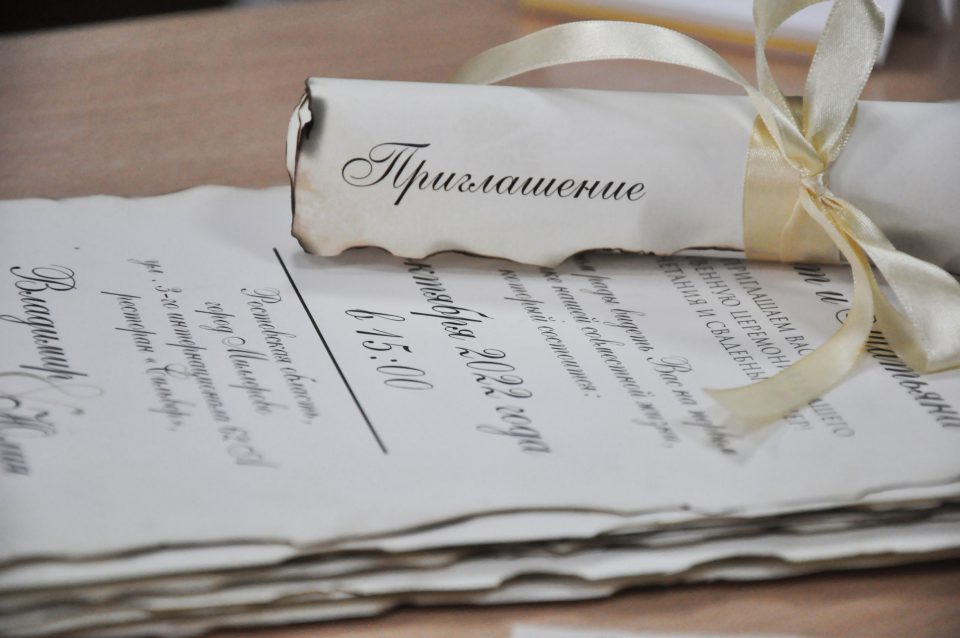 Приглашение
т и
ПРИГЛАШАЕМ ВАС
ЦЕРЕМОНИЮ НАШЕГО
ЕТАНИЯ И СВАДЕБНЫЙ
рады видеть Вас на первом
нашей совместной жизни,
который состоится:
ктября 2022 года
в 15:00
Ростовская область,
город Миллерово
ул. 3-го интернационала 62 А
ресторан
Владимир